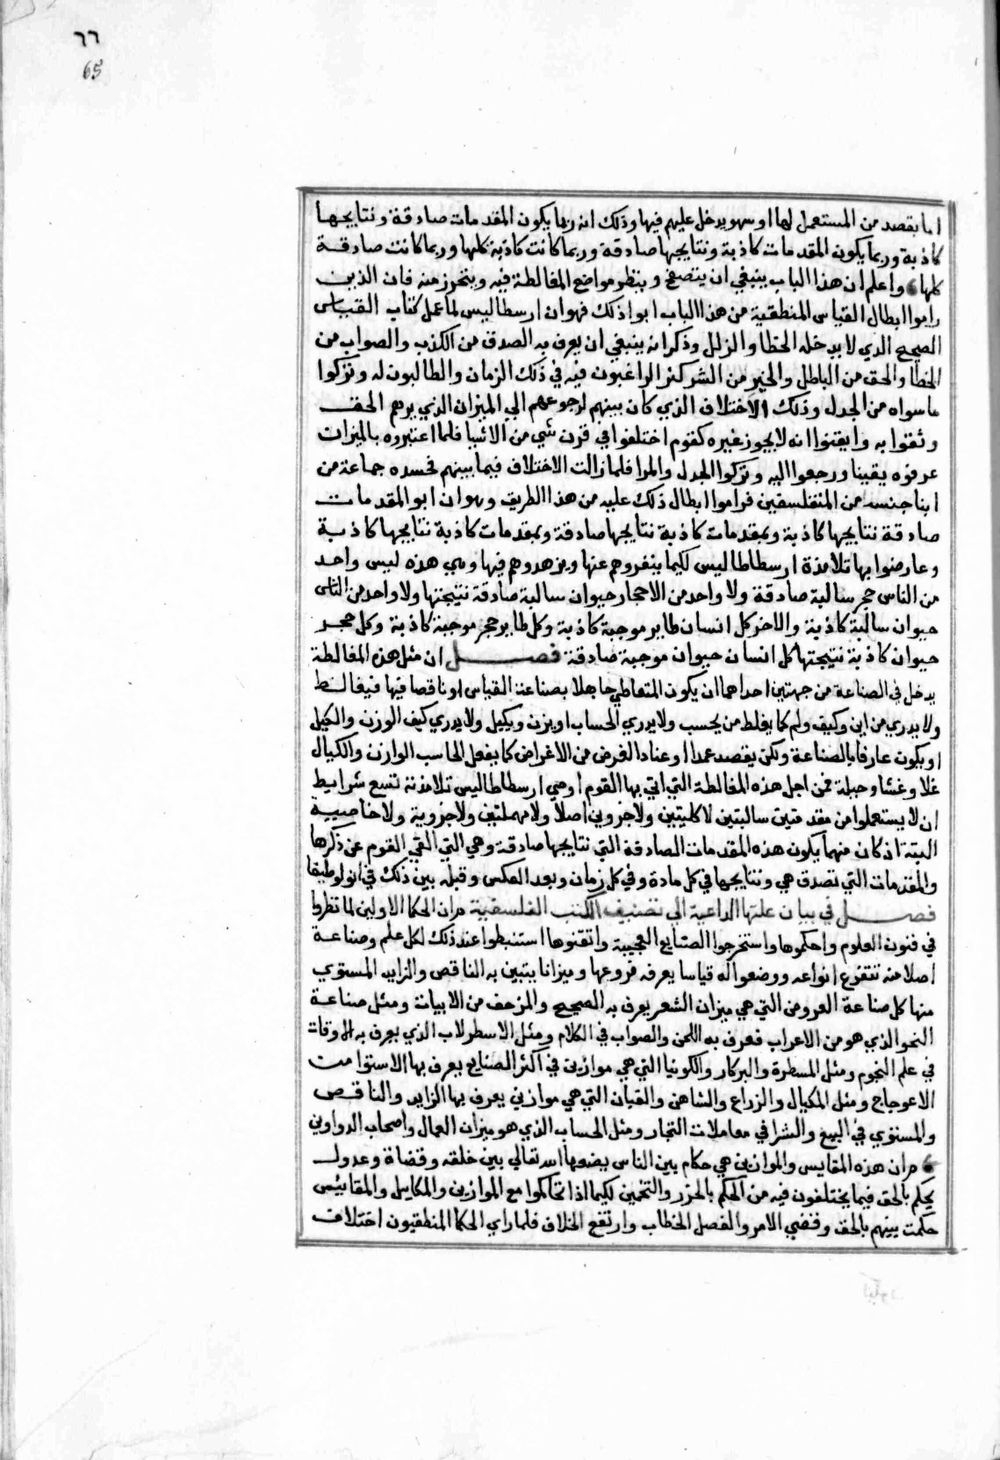 ٦٦
65
اما بقصد من المستعمل لها او سهو يدخل عليهم فيها وذلك انه ربما يكون المقدمات صادقة ونتايجها
كاذبة وربما يكون المقدمات كاذبة ونتايجها صادقة وربما كانت كاذبة كلها وربما كانت صادقة
كلها واعلم ان هذا الباب ينبغي ان يتصفح وينظر مواضع المغالطة فيه ويتحرز منه فان الذين
راموا ابطال القياس المنطقية من هذا الباب ابوا ذلك فهو ان ارسطاليس لما عمل كتاب القياس
الصحيح الذي لا يدخله الخطا والزلل وذكر انه ينبغي ان يعرف به الصدق من الكذب والصواب من
الخطا والحق من الباطل والخير من الشر كثر الراغبون فيه في ذلك الزمان والطالبون له وتركوا
ما سواه من الجدل وذلك الاختلاف الذي كان بينهم لرجوعهم الي الميزان الذي يريهم الحق
وثقوا به وايقنوا انه لا يجوز غيره كقوم اختلفوا في قرن شي من الاشيا فلما اعتبروه بالميزان
عرفوه يقينا ورجعوا اليه وتركوا الجدل والمرا فلما زالت الاختلاف فيما بينهم فحسده جماعة من
ابنا جنسه من المتفلسفين فراموا ابطال ذلك عليه من هذا الطريف وهو ان ابوا المقدمات
صادقة نتايجها كاذبة وبمقدمات كاذبة نتايجها صادقة وبمقدمات كاذبة نتايجها كاذبة
وعارضوا بها تلامذة ارسطاطاليس لكيما ينفروهم عنها ويزهدوهم فيها وهي هذه ليس واحد
من الناس حجر سالبة صادقة ولا واحد من الاحجار حيوان سالبة صادقة نتيجتها ولا واحد من الناس
حيوان سالبة كاذبة والاخر كل انسان طاير موجبة كاذبة وكل طاير حجر موجبة كاذبة وكل حجر
حيوان كاذبة نتيجتها كل انسان حيوان موجبة صادقة فصل ان مثل هذه المغالطة
يدخل في الصناعة من جهتين احداهما ان يكون المتعاطي جاهلا بصناعة القياس او ناقصا فيها فيغالط
ولا يدري من اين وكيف ولم كما يغلط من يحسب ولا يدري الحساب او يزن ويكيل ولا يدري كيف الوزن والكيل
او يكون عارفا بالصناعة ولكن يقصد عمدا او عنادا لغرض من الاغراض كما يفعل الحاسب الوازن والكيال
غلا وغشا وحيلة فمن اجل هذه المغالطة التي اتي بها القوم اوصي ارسطاطاليس تلامذته تسع شرايط
ان لا يستعملوا من مقدمتين سالبتين لا كليتين ولا جزويتن اصلا ولا مهملتين ولا جزوية ولا خاصية
البتة اذ كان منهما يكون هذه المقدمات الصادقة التي نتايجها صادقة وهي التي القي القوم عن ذكرها
والمقدمات التي تصدق هي ونتايجها في كل مادة وفي كل زمان وبعد العكس وقبله بين ذلك في انولوطيقا
فصل في بيان علتها الداعية الي تصنيف الكتب الفلسفية مران الحكما الاولين لما نظروا
في فنون العلوم واحكموها واستخرجوا الصنايع العجيبة واتقنوها استنبطوا عند ذلك لكل علم وصناعة
اصلا منه تتفرع انواعه ووضعوا له قياسا يعرفه فروعها وميزانا يتبين به الناقص والزايد المستوي
منها كل صناعة العروض التي هي ميزان الشعر يعرف به الصحيح والمزحف من الابيات ومثل صناعة
النحو الذي هو من الاعراب فعرف به اللحن والصواب في الكلام ومثل الاسطرلاب الذي يعرف به الاوقات
في علم النجوم ومثل المسطرة والبركار والكونيا التي هي موازين في اكثر الصنايع يعرف بها الاستوا من
الاعوجاج ومثل المكيال والزراع والشاهن والقبان التي هي موازين يعرف بها الزايد والناقص
والمستوي في البيع والشرا في معاملات التجار ومثل الحساب الذي هو ميزان العمال واصحاب الدواوين
مران هذه المقايس والموازين هي حكام بين الناس يضوها الله تعالي بين خلقه وقضاة وعدول
يحكم بالحق فيما يختلفون فيه من الحكم بالحزر والتخمين لكيما اذا تحاكموا مع الموازين والمكايل والمقاييس
حكمت بينهم بالحق وقضي الامر والفصل الخطاب وارتفع الخلاف فلما راي الحكما المنطقيون اختلاف